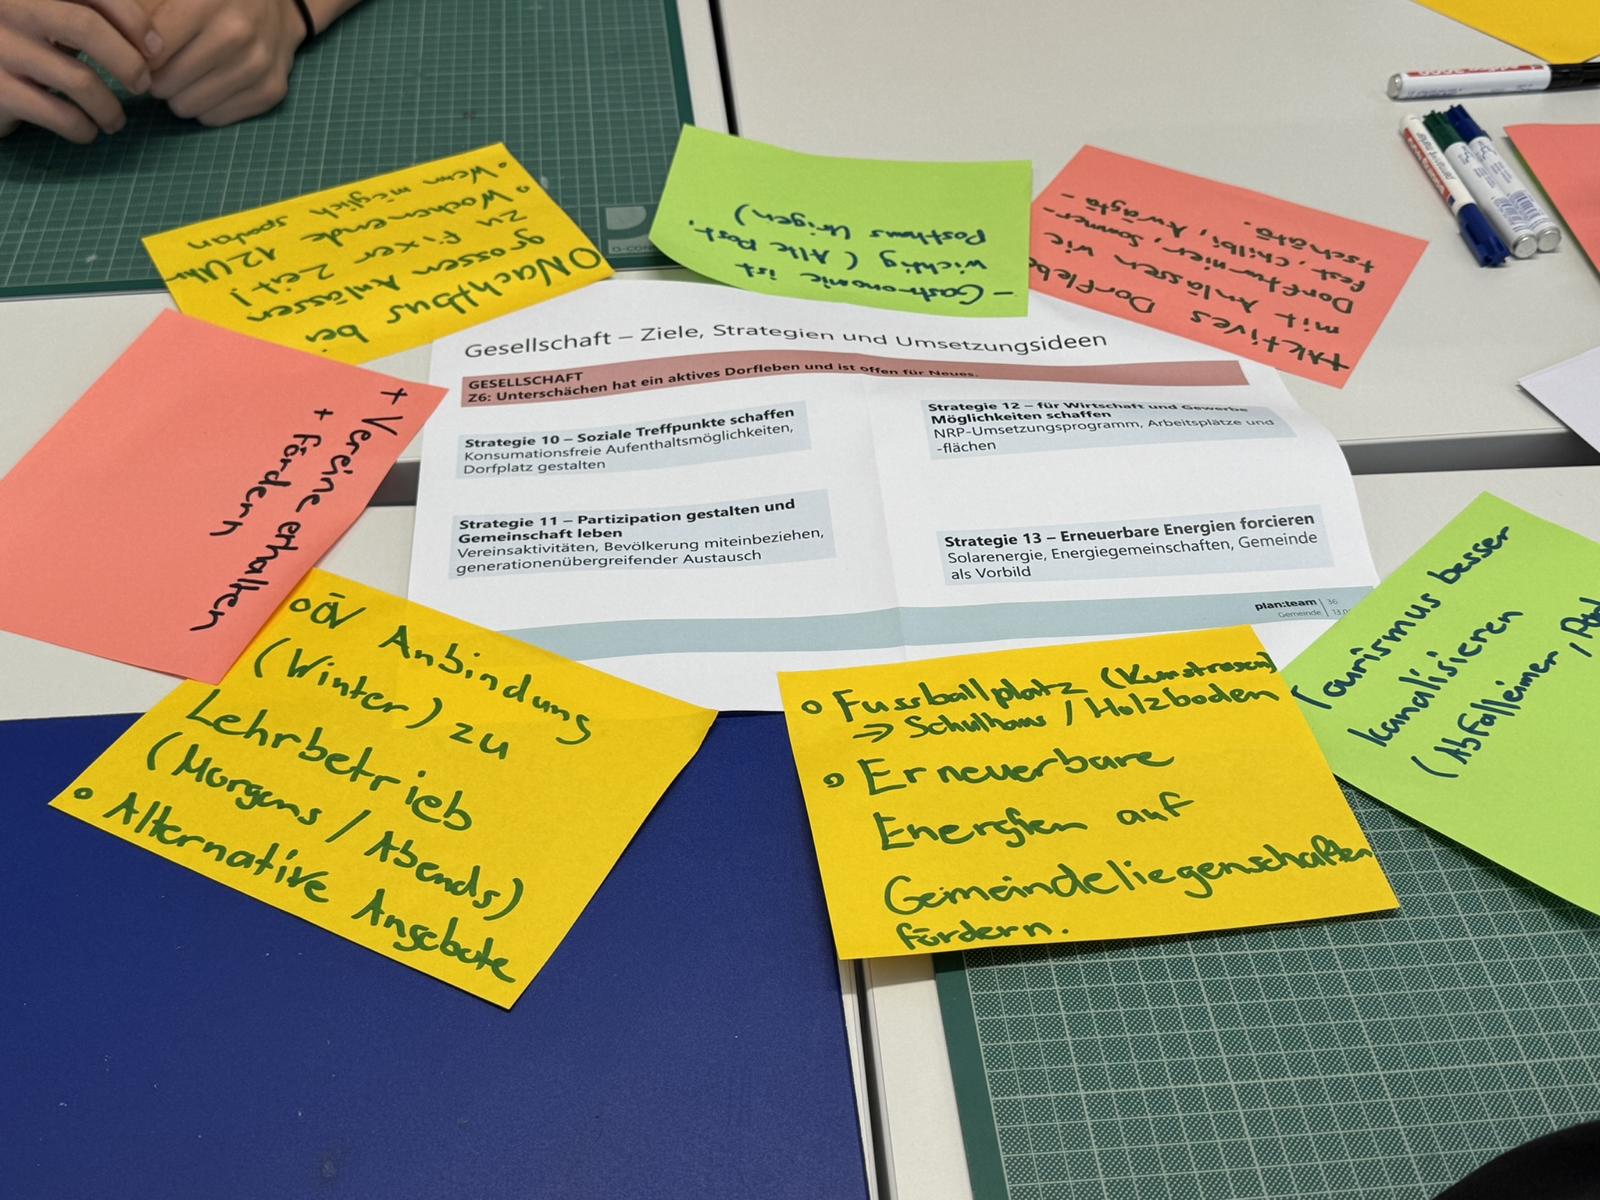 Gesellschaft – Ziele, Strategien und Umsetzungsideen
GESELLSCHAFT
Z6: Unterschächen hat ein aktives Dorfleben und ist offen für Neues.
Strategie 10 – Soziale Treffpunkte schaffen
Konsumationsfreie Aufenthaltsmöglichkeiten,
Dorfplatz gestalten
Strategie 11 – Partizipation gestalten und
Gemeinschaft leben
Vereinsaktivitäten, Bevölkerung miteinbeziehen,
generationenübergreifender Austausch
Strategie 12 – für Wirtschaft und Gewerbe
Möglichkeiten schaffen
NRP-Umsetzungsprogramm, Arbeitsplätze und
-flächen
Strategie 13 – Erneuerbare Energien forcieren
Solarenergie, Energiegemeinschaften, Gemeinde
als Vorbild
plan:team 36
Gemeinde
Nachtbus bei
grossen Anlässen
zu fixer Zeit!
Wochenende 12 Uhr
Wenn möglich spontan
- Gastronomie ist
wichtig (Alte Post,
Posthaus Urigen)
Aktives Dorfleben
mit Anlässen wie
Dorfturnier, Sommer-
fest, Chilbi,
+ Vereine erhalten
+ fördern
ÖV Anbindung
(Winter) zu
Lehrbetrieb
(Morgens / Abends)
Alternative Angebote
Fussballplatz (Kunstrasen)
→ Schulhaus / Holzboden
Erneuerbare
Energien auf
Gemeindeliegenschaften
fördern.
Tourismus besser
kanalisieren
(Abfalleimer,
edding 3000